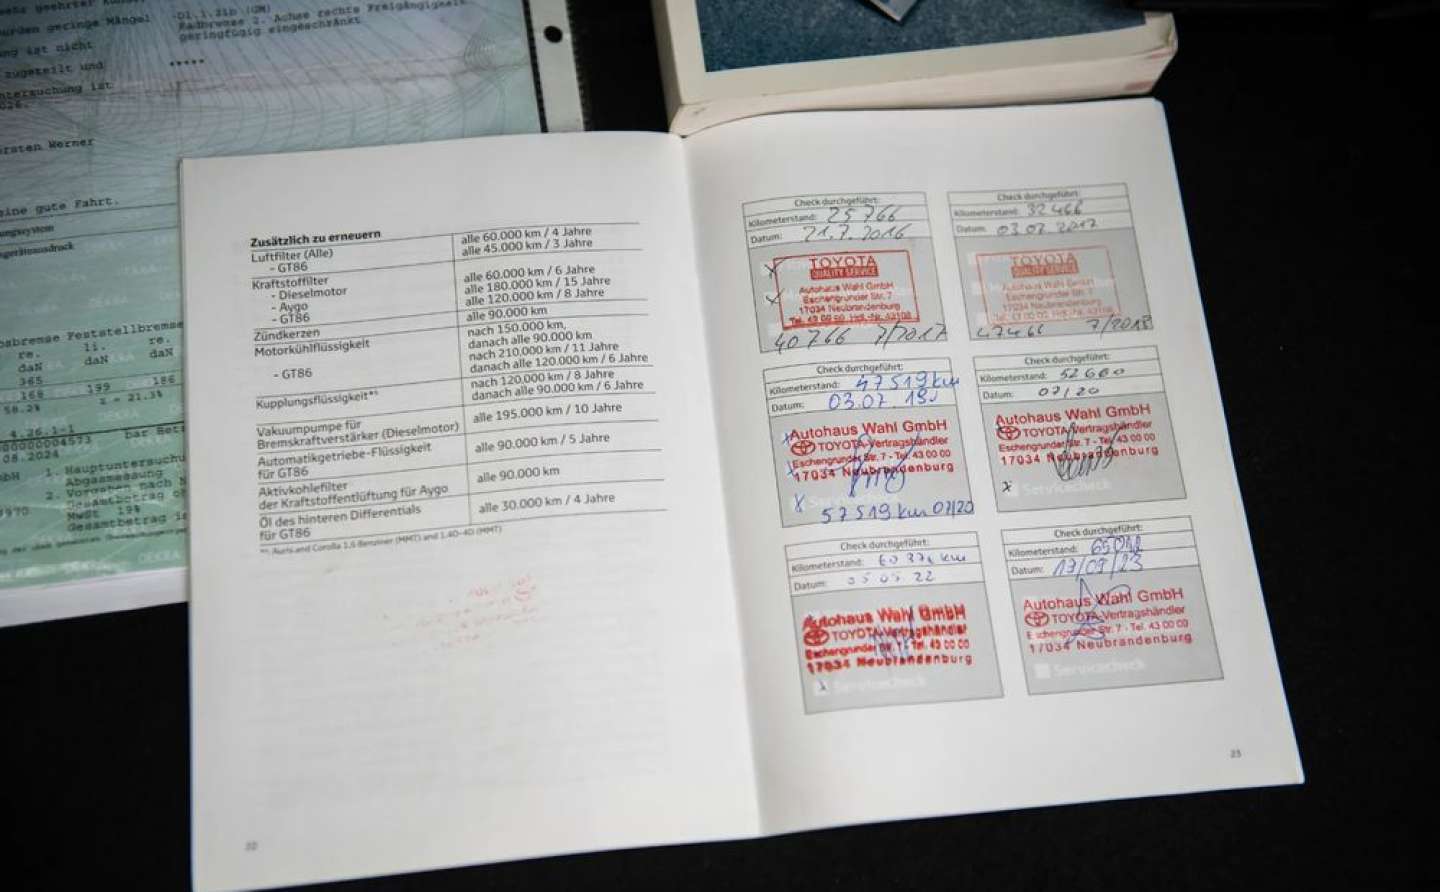 sehr geehrter
geringe Mängel
-D1.1.21b (GM)
Radbremse 2. Achse rechts Freigängigkeit
geringfügig eingeschränkt.
ist nicht
zugeteilt und
*****
ist
Werner
gute Fahrt.
Feststellbremse
re. li. re.
daN daN daN
365
168 199 186
58.2% Σ = 21.3%
4.26.1-1
08.2024
1. Hauptuntersuchu
Abgasmessung
2.
Gesamtbetrag
MwSt 19%
Gesamtbetrag
Zusätzlich zu erneuern
Luftfilter (Alle) alle 60.000 km / 4 Jahre
- GT86 alle 45.000 km / 3 Jahre
Kraftstoffilter
- Dieselmotor alle 60.000 km / 6 Jahre
- Aygo alle 180.000 km / 15 Jahre
- GT86 alle 120.000 km / 8 Jahre
Zündkerzen alle 90.000 km
Motorkühlflüssigkeit nach 150.000 km,
danach alle 90.000 km
- GT86 nach 210.000 km / 11 Jahre
danach alle 120.000 km / 6 Jahre
Kupplungsflüssigkeit** nach 120.000 km / 8 Jahre
danach alle 90.000 km / 6 Jahre
Vakuumpumpe für
Bremskraftverstärker (Dieselmotor) alle 195.000 km / 10 Jahre
Automatikgetriebe-Flüssigkeit
für GT86 alle 90.000 km / 5 Jahre
Aktivkohlefilter
der Kraftstoffentlüftung für Aygo alle 90.000 km
Öl des hinteren Differentials
für GT86 alle 30.000 km / 4 Jahre
** Auris und Corolla 1,6 Benziner (MMT) und 1,4D-4D (MMT)
Check durchgeführt:
Kilometerstand: 25 766
Datum: 21.7.2016
TOYOTA
QUALITY SERVICE
Autohaus Wahl GmbH
Eschengrunder Str. 7
17034 Neubrandenburg
40 766 7/2017
Check durchgeführt:
Kilometerstand: 32 466
Datum: 03.07.2017
TOYOTA
QUALITY SERVICE
Autohaus Wahl GmbH
Eschengrunder Str. 7
17034 Neubrandenburg
47466 7/2018
Check durchgeführt:
Kilometerstand: 47519 km
Datum: 03.07.19
Autohaus Wahl GmbH
TOYOTA-Vertragshändler
Eschengrunder Str. 7 - Tel. 43 00 00
17034 Neubrandenburg
Servicecheck
57519 km 07/20
Check durchgeführt:
Kilometerstand: 52600
Datum: 07/20
Autohaus Wahl GmbH
TOYOTA-Vertragshändler
Eschengrunder Str. 7 - Tel. 43 00 00
17034 Neubrandenburg
Servicecheck
Check durchgeführt:
Kilometerstand: km
Datum: 05 05 22
Autohaus Wahl GmbH
TOYOTA-Vertragshändler
Eschengrunder Str. 7 - Tel. 43 00 00
17034 Neubrandenburg
Servicecheck
Check durchgeführt:
Kilometerstand:
Datum:
Autohaus Wahl GmbH
TOYOTA-Vertragshändler
Eschengrunder Str. 7 - Tel. 43 00 00
17034 Neubrandenburg
Servicecheck
22
23